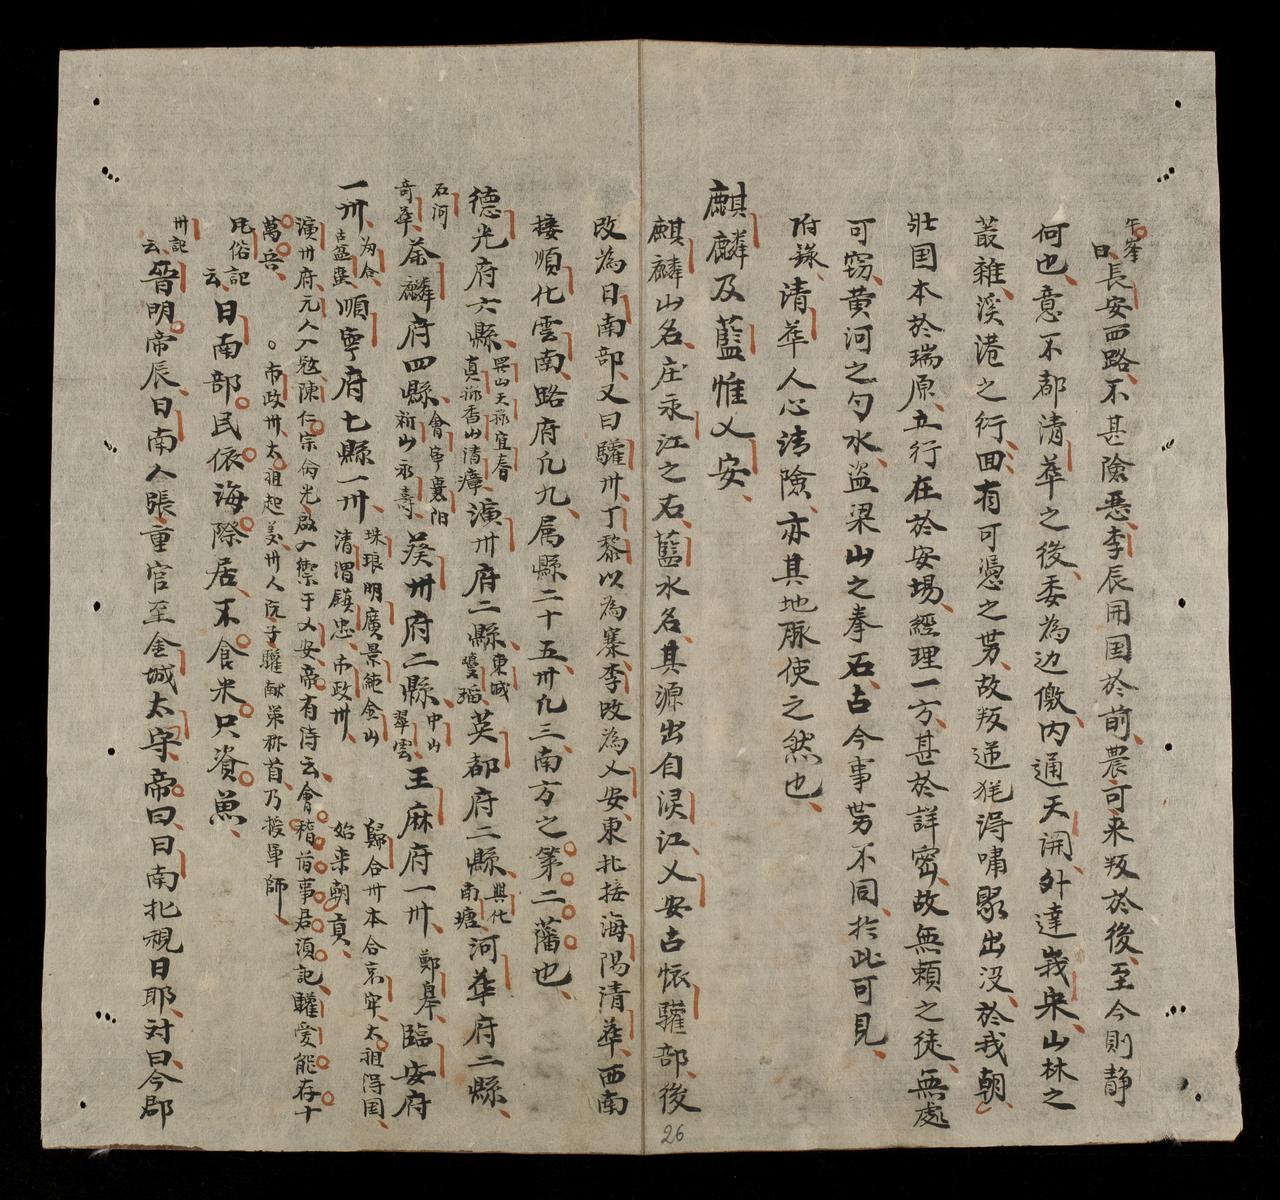 午峯曰長安西路不甚險恶李辰開国於前農可来叛於後至今則静
何也意不都清華之後委為边儌内通天開外達峩朱山林之
叢雜溪港之行回有可憑之势故叛逆㹠淂嘯聚出没於我朝
壯国本於瑞原立行在於安場經理一方甚於詳密故無頼之徒無處
可窃黄河之勺水盗梁山之拳石古今事势不同扵此可見
附錄清華人心清險亦其地脉使之然也
麒麟及藍惟乂安
麒麟山名庄永江之右藍水名其源出自淚江乂安古懷驩部後
改為日南部又曰驩州丁黎以為寨李改為乂安東北接海陽清華西南
接順化雲南路府凢九属縣二十五州凢三南方之第二藩也
德光府六縣 天祿宜春真祿香山清漳 演州府二縣東城 英都府二縣興化南塘 河華府二縣
石河奇華 茶麟府四縣會寧襄陽祈山永壽 葵州府二縣中山翠雲 王麻府一州鄭臯 臨安府
一州 順寧府七縣一州 珠琅明廣景純金山清渭鎮忠市政州 歸合州本合哀牢太祖淂国始来朝貢
演州府元人入寇陳仁宗 御于乂安帝有诗云會稽旧事君湏記驩愛能存十
萬兵 市政州太祖起义州人阮子驩献栄称首乃授軍師
风俗記云日南部民依海際居不食米只資魚
州記云晉明帝辰日南人張重官至金城太守帝曰日南北視日耶対曰今郡
26